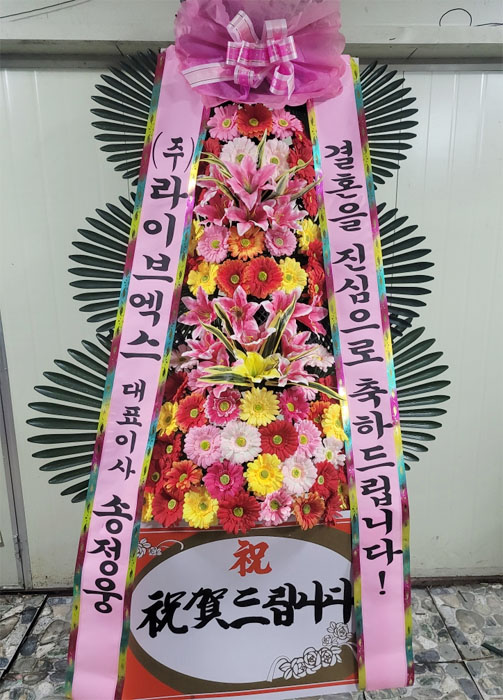 (주)라이브엑스 대표이사 송정웅
결혼을 진심으로 축하드립니다!
祝
祝賀드립니다